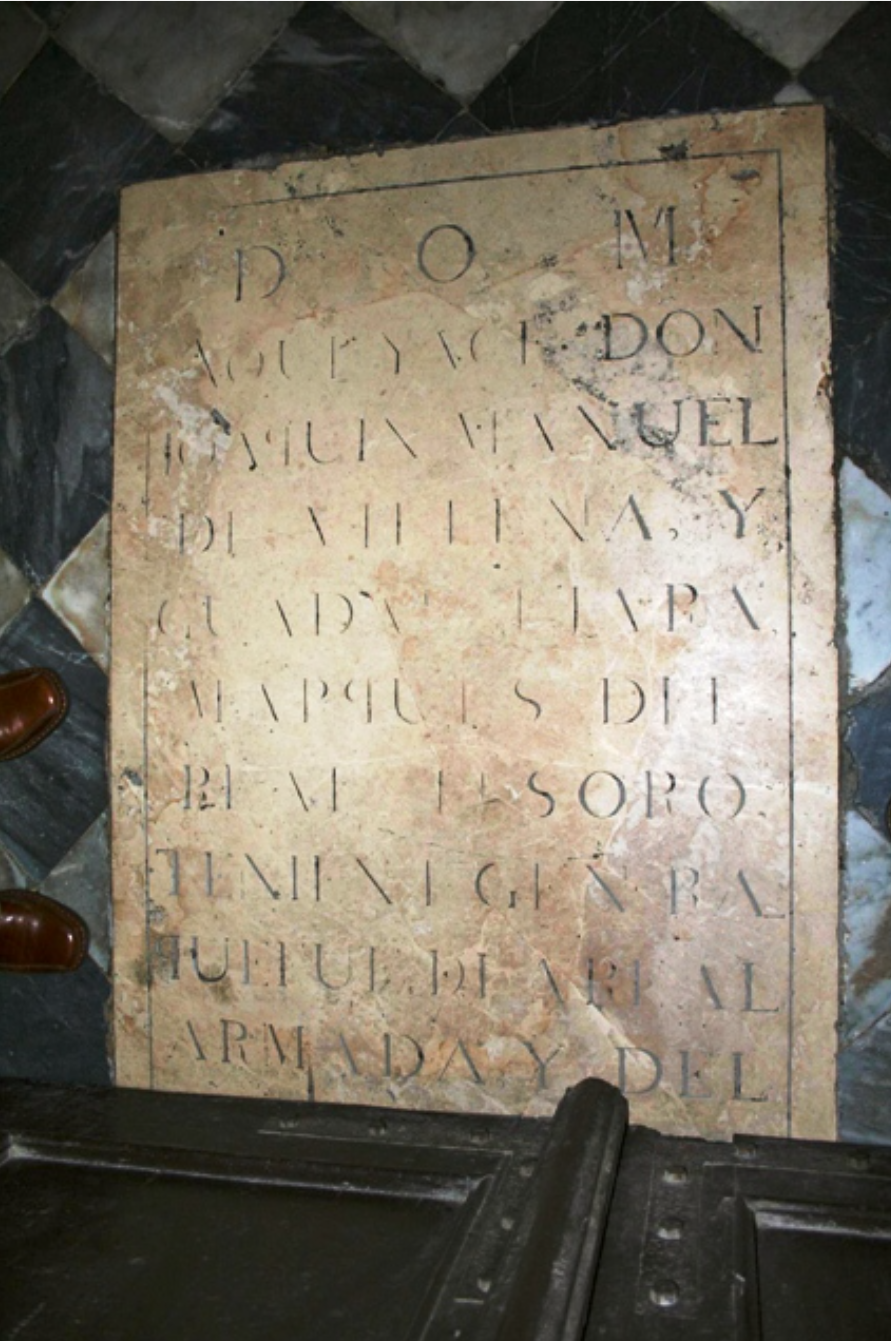 D O M
AQUI YACE DON
IOAQUIN MANUEL
DE VILLENA, Y
GUADALFIARA
MARQUES DEL
REAL TESORO
TENIENT GENRAL
QUE FUE DE LA REAL
ARMADA, Y DEL